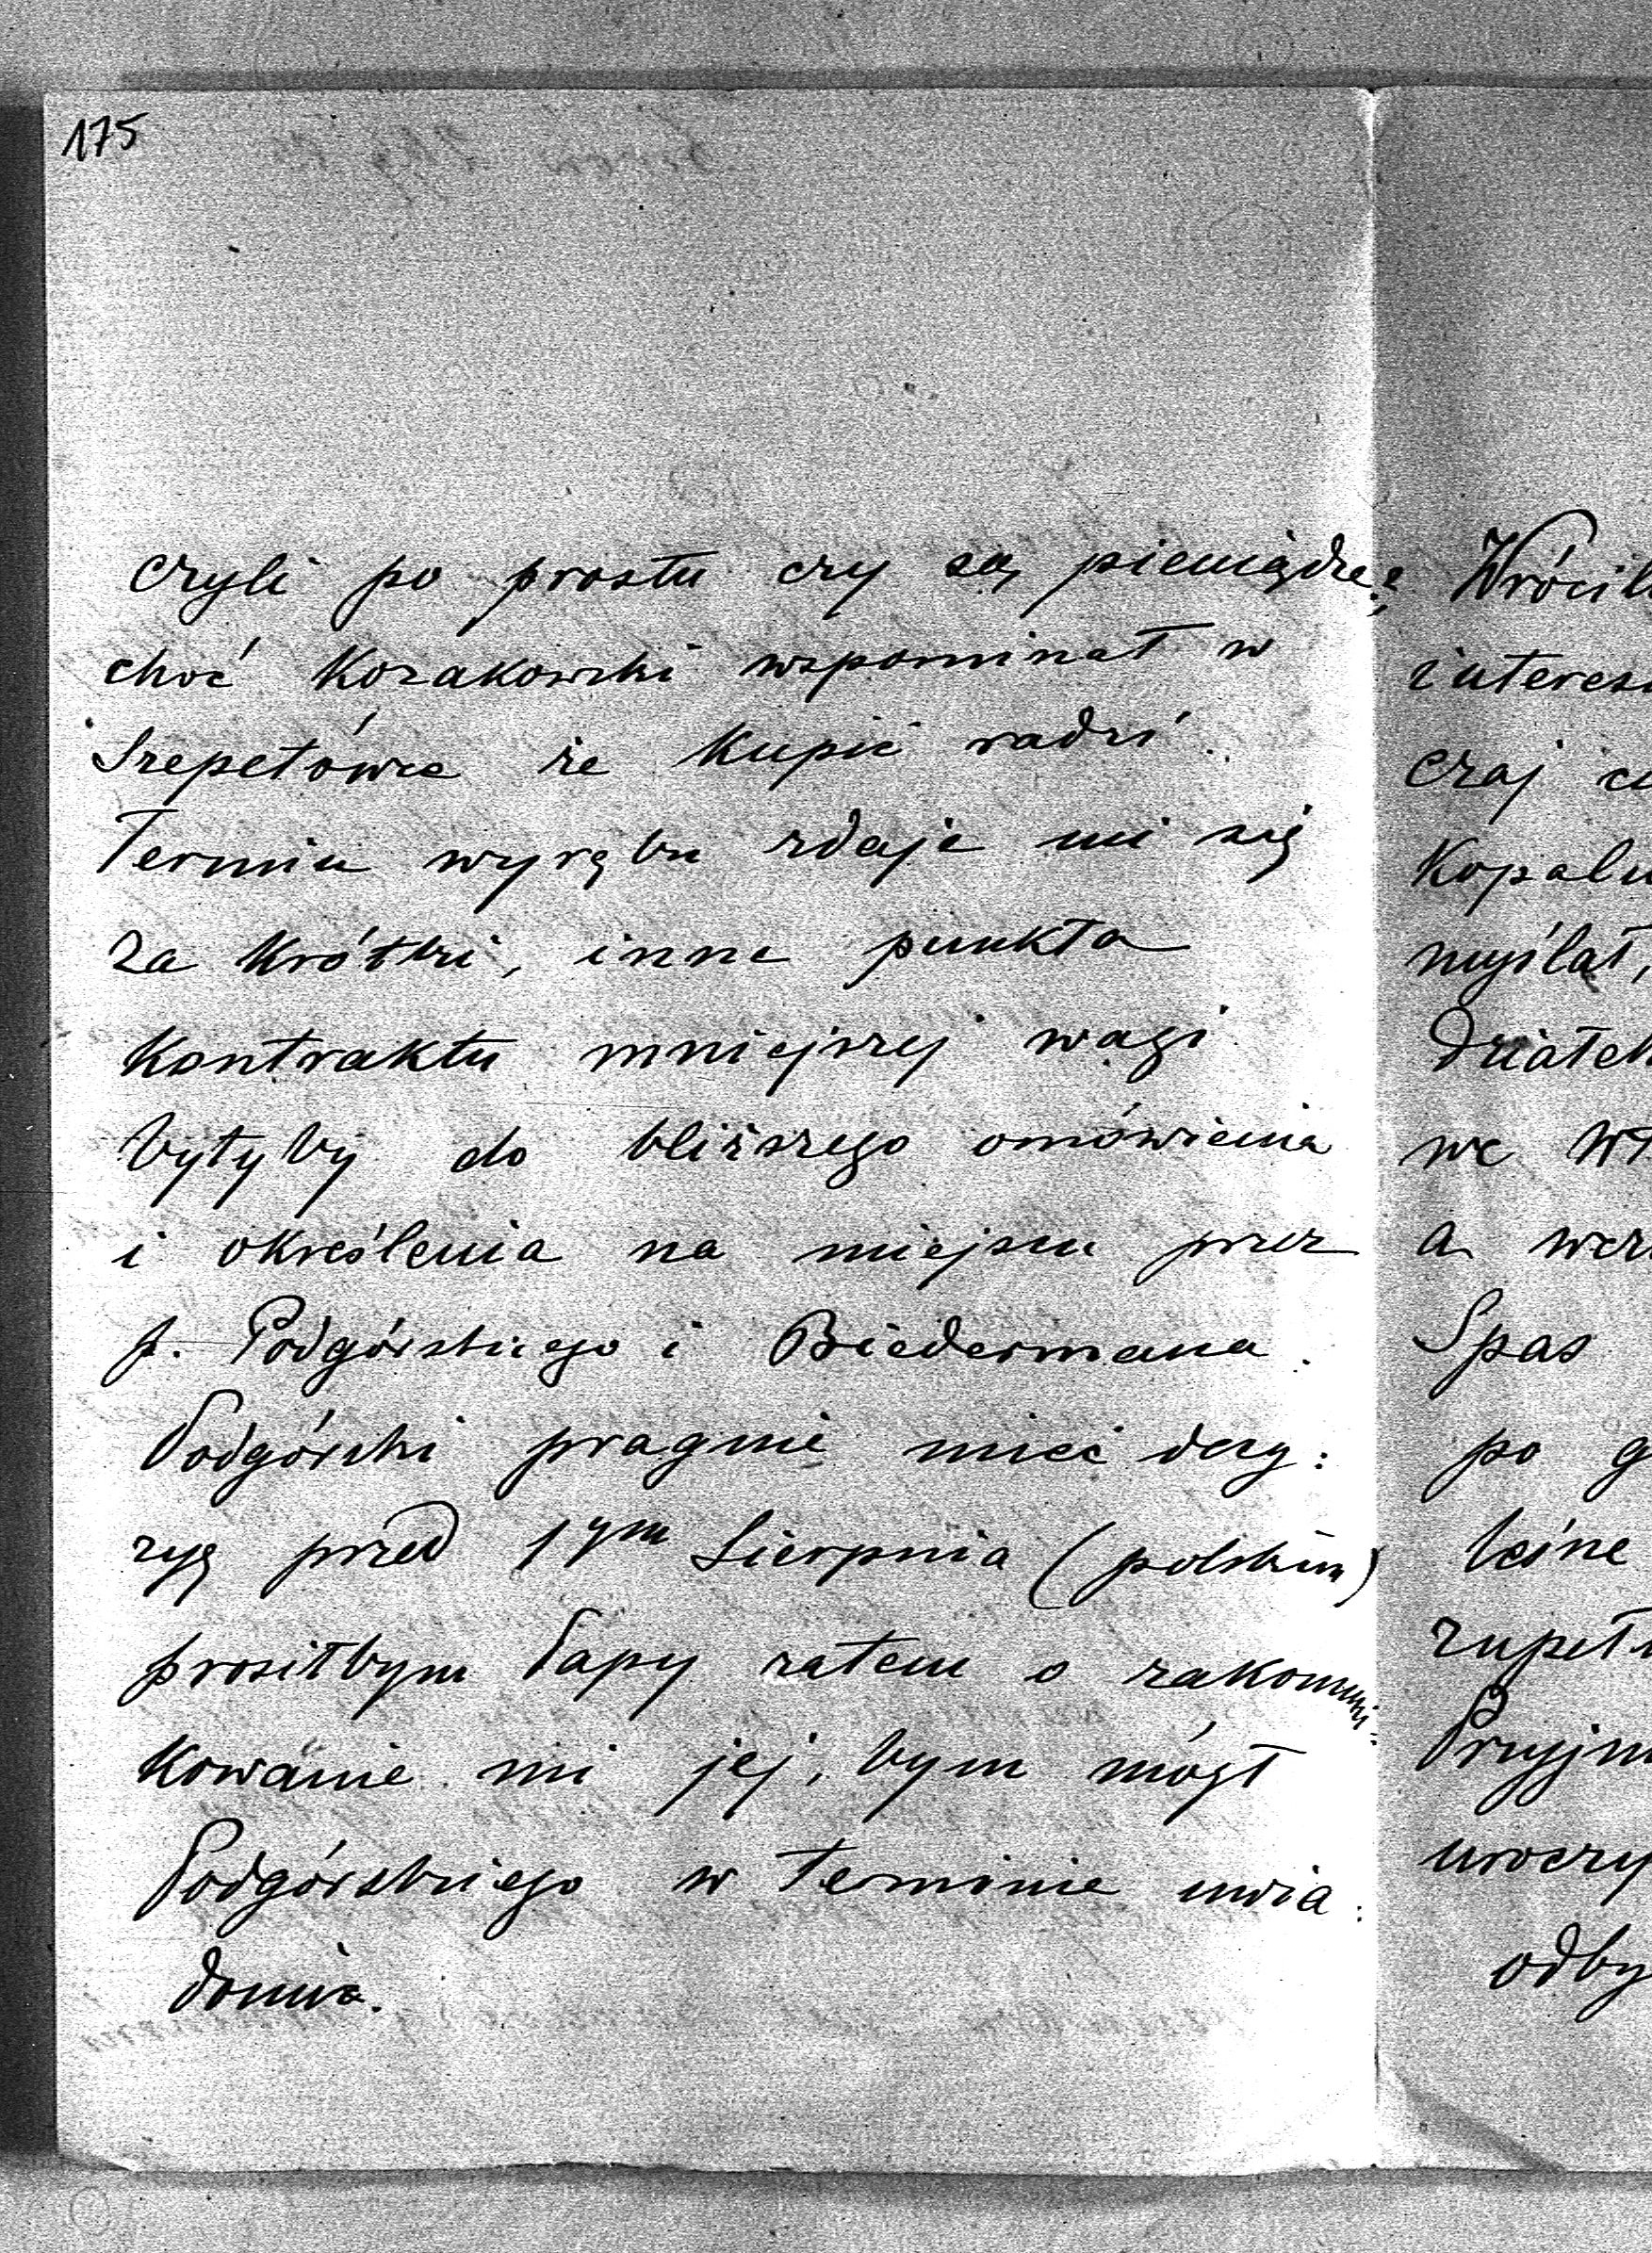 175
czyli po prostu czy są pieniądze?
choć Kozakowski wspominał w
Szepetówce że kupić radzi.
Termin wyrębu zdaje mi się
za krótki, inne punkta
kontraktu mniejszej wagi
byłyby do bliższego omówienia
i określenia na miejscu przez
p. Podgórskiego i Biedermana.
Podgórski pragnie mieć decy:
zyę przed 1ym Sierpnia (polskim)
prosiłbym Papy zatem o zakomuni:
kowanie mi jej, bym mógł
Podgórskiego w terminie uwia:
domić.
Wrócił
interes
czaj
Kopaln
myślał,
działek
we
a
Spas
po g
leśne
zupeł
Przyjm
uroczy
odby